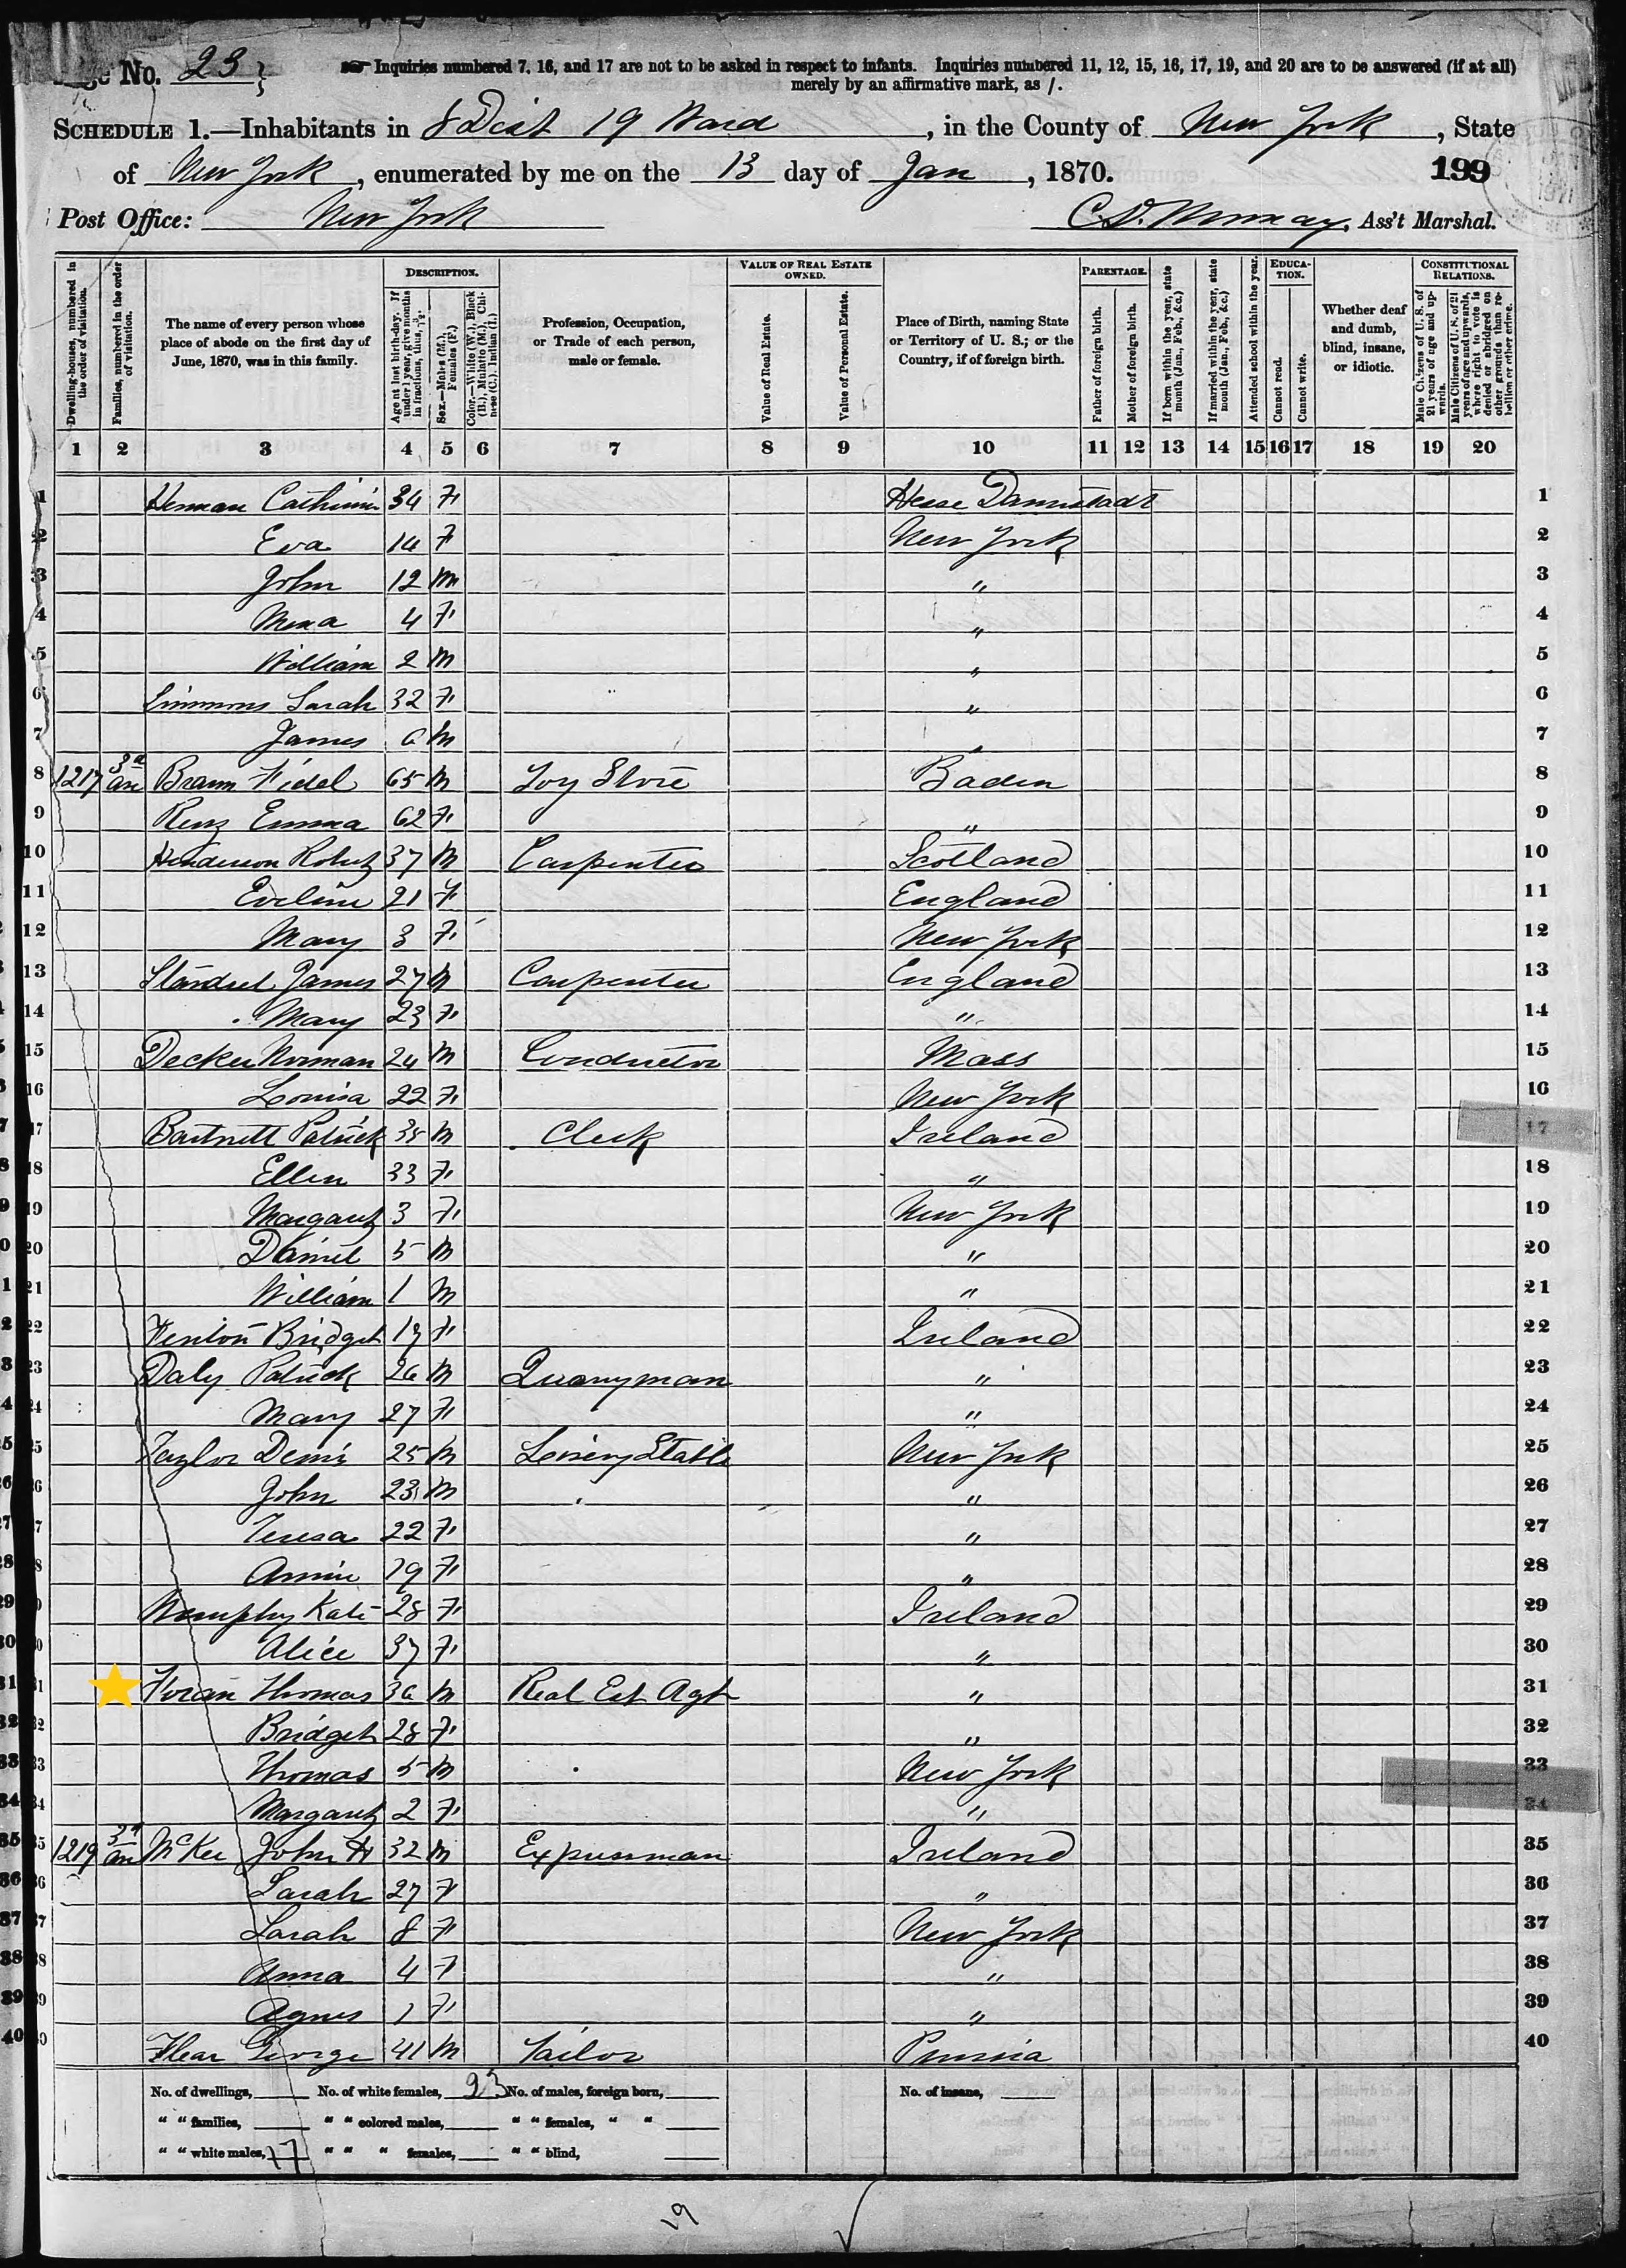 No. 23
Inquiries numbered 7, 16, and 17 are not to be asked in respect to infants. Inquiries numbered 11, 12, 15, 16, 17, 19, and 20 are to be answered (if at all)
merely by an affirmative mark, as /.
SCHEDULE 1.—Inhabitants in 8 Dist 19 Ward, in the County of New York, State
of New York, enumerated by me on the 13 day of Jan, 1870.
199
Post Office: New York
C. D. Ass't Marshal.
Dwelling-houses, numbered in the order of visitation.
Families, numbered in the order of visitation.
The name of every person whose place of abode on the first day of June, 1870, was in this family.
DESCRIPTION.
Age at last birth-day. If under 1 year, give months in fractions, thus, 3/12.
Sex.—Males (M.), Females (F.)
Color.—White (W.), Black (B.), Mulatto (M.), Chinese (C.), Indian (I.)
Profession, Occupation, or Trade of each person, male or female.
VALUE OF REAL ESTATE OWNED.
Value of Real Estate.
Value of Personal Estate.
Place of Birth, naming State or Territory of U. S.; or the Country, if of foreign birth.
PARENTAGE.
Father of foreign birth.
Mother of foreign birth.
If born within the year, state month (Jan., Feb., &c.)
If married within the year, state month (Jan., Feb., &c.)
Attended school within the year.
EDUCATION.
Cannot read.
Cannot write.
Whether deaf and dumb, blind, insane, or idiotic.
CONSTITUTIONAL RELATIONS.
Male Citizens of U. S. of 21 years of age and upwards.
Male Citizens of U. S. of 21 years of age and upwards, where right to vote is denied or abridged on other grounds than rebellion or other crime.
1 2 3 4 5 6 7 8 9 10 11 12 13 14 15 16 17 18 19 20
1 Herman 34 F Hesse Darmstadt 1
2 Eva 14 F New York 2
3 John 12 M " 3
4 4 F " 4
5 William 2 M " 5
6 Simmons Sarah 32 F " 6
7 James 6 M " 7
8 1217 3d av Braun Fidel 65 M Toy Store Baden 8
9 Renz Emma 62 F " 9
10 Henderson Robert 37 M Carpenter Scotland 10
11 Eveline 21 F England 11
12 Mary 3 F New York 12
13 James 27 M Carpenter England 13
14 Mary 23 F " 14
15 Decker Norman 24 M Conductor Mass 15
16 Louisa 22 F New York 16
17 Bartnett Patrick 35 M Clerk Ireland 17
18 Ellen 33 F " 18
19 Margaret 3 F New York 19
20 Daniel 5 M " 20
21 William 1 M " 21
22 Fenton Bridget 19 F Ireland 22
23 Daly Patrick 26 M Quarryman " 23
24 Mary 27 F " 24
25 Taylor Denis 25 M Livery Stable New York 25
26 John 23 M " 26
27 Teresa 22 F " 27
28 Annie 19 F " 28
29 Kate 28 F Ireland 29
30 Alice 37 F " 30
31 Foran Thomas 36 M Real Est Agt " 31
32 Bridget 28 F " 32
33 Thomas 5 M New York 33
34 Margaret 2 F " 34
35 1219 3d av McKee John H 32 M Expressman Ireland 35
36 Sarah 27 F " 36
37 Sarah 8 F New York 37
38 Anna 4 F " 38
39 Agnes 1 F " 39
40 George 41 M Tailor Prussia 40
No. of dwellings, No. of white females, 23 No. of males, foreign born, No. of insane,
" " families, " " colored males, " " females, " "
" " white males, 17 " " " females, " " blind,
19